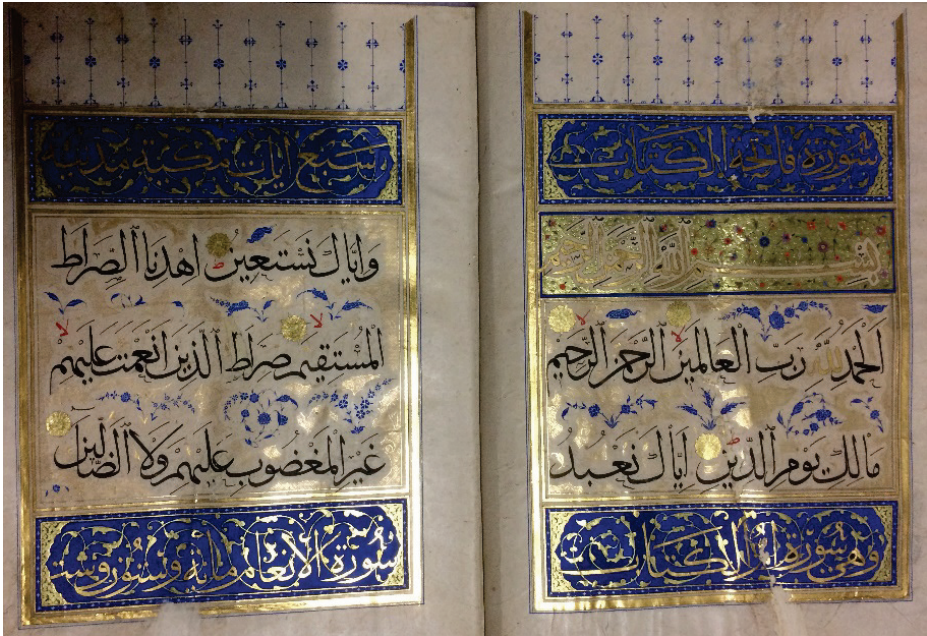 سورة فاتحة الكتاب
بسم الله الرحمن الرحيم
اَلْحَمْدُ لِلّٰهِ رَبِّ الْعَالَمِينَ الرَّحْمٰنِ الرَّحِيمِ
مَالِكِ يَوْمِ الدِّينِ اِيَّاكَ نَعْبُدُ
وهي سورة ام الكتاب
سبع ايات مكية مدنية
وَاِيَّاكَ نَسْتَعِينُ اِهْدِنَا الصِّرَاطَ
الْمُسْتَقِيمَ صِرَاطَ الَّذِينَ اَنْعَمْتَ عَلَيْهِمْ
غَيْرِ الْمَغْضُوبِ عَلَيْهِمْ وَلَا الضَّالِّينَ
سورة الانعام مائة وستون وست